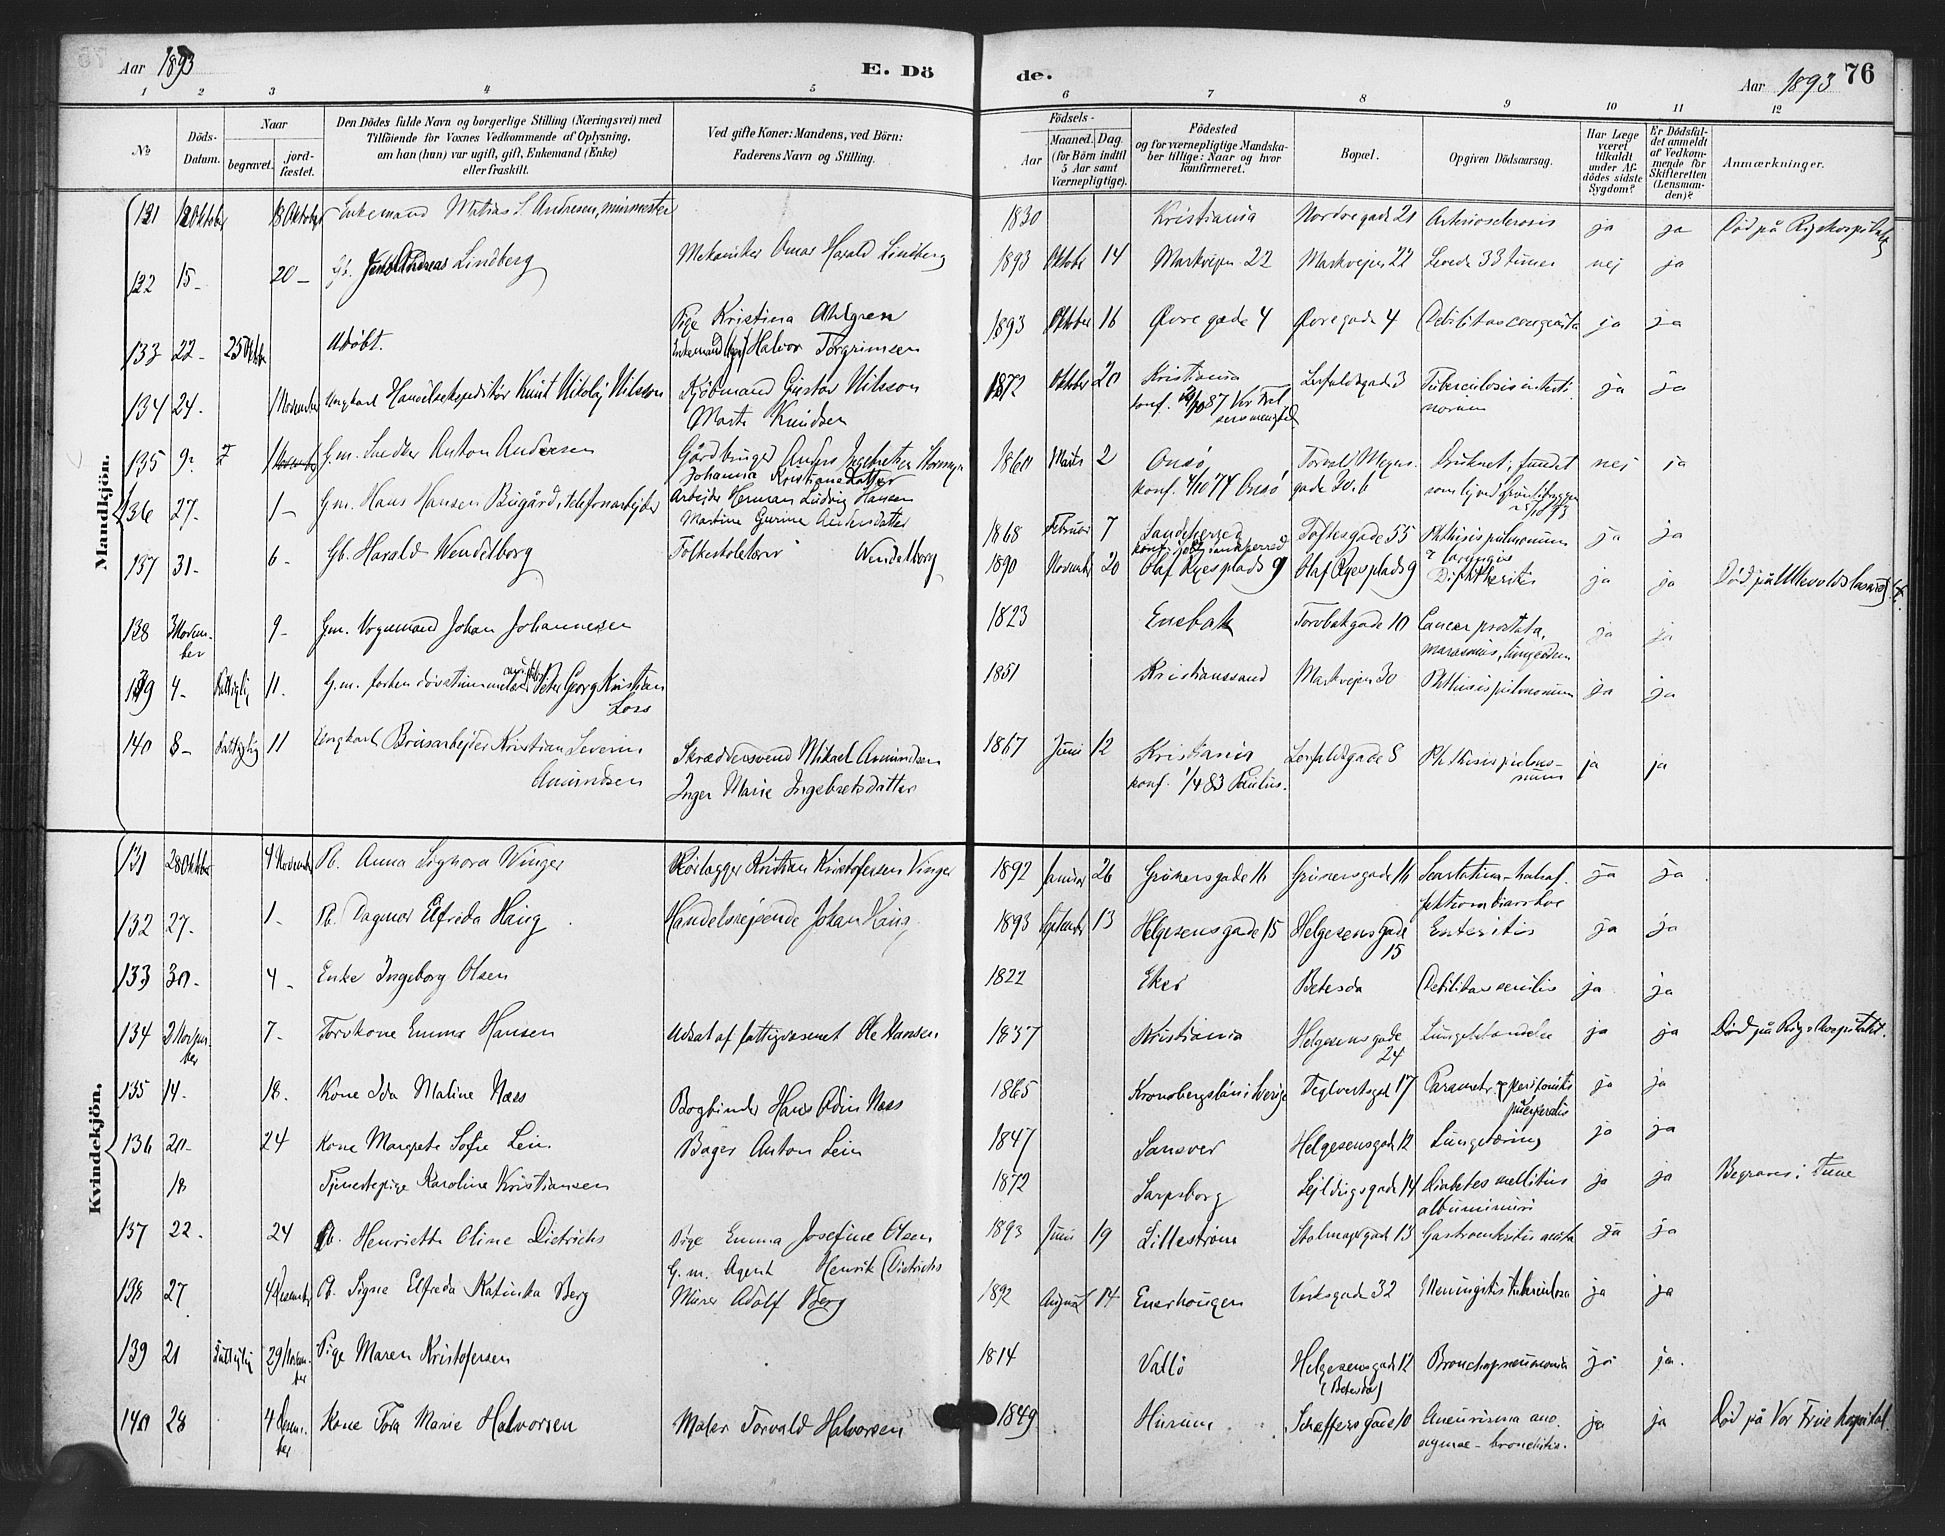 Aar 1893
E. Dö
de.
Aar 1893 76
1 2 3 4 5 6 7 8 9 10 11 12
No
Döds-Datum.
Naar
begravet.
jord-fæstet.
Den Dödes fulde Navn og borgerlige Stilling (Næringsvei) med
Tilföiende for Voxnes Vedkommende af Oplysning,
om han (hun) var ugift, gift, Enkemand (Enke)
eller fraskilt.
Ved gifte Koner: Mandens, ved Börn:
Faderens Navn og Stilling.
Födsels-
Aar
Maaned. Dag.
(for Börn indtil
5 Aar samt
Værnepligtige).
Födested
og for værnepligtige Mandska-
ber tillige: Naar og hvor
konfirmeret.
Bopæl.
Opgiven Dödsaarsag.
Har Læge
været
tilkaldt
under Af-
dödes sidste
Sygdom?
Er Dödsfal-
det anmeldt
af Vedkom-
mende for
Skifteretten
(Lensman-
den)?
Anmærkninger.
Mandkjön.
131 12 Oktober 18 Oktober Enkemand Matias S. Andresen, murmester 1830 Kristiania Nordregade 21 Arteriosclerosis ja ja Död på Rigshospitalet
132 15 - 20 - Gb. Andreas Lindberg Mekaniker Omar Harald Lindberg 1893 Oktober 14 Markvejen 22 Markvejen 22 Levede 33 timer nej ja
133 22 - 25 Oktober Udöbt. Pige Kristina Ahlgren
Enkemand Halvor Torgrimsen 1893 Oktober 16 Övregade 4 Övregade 4 Debilitas congenita ja ja
134 24. 1 November Ungkarl Handelsekspeditör Knut Nikolaj Nilsson Kjöbmand Gustav Nilsson
Marte Knudsen 1872 Oktober 20 Kristiania
konf. 87 Vor Frel
sersmenighed Tuberculosis intesti-
norum ja ja
135 G.m. Snedker Anton Andersen Gårdbruger Anders Ingebretsen
Johanna Kristiansdatter 1860 Marts 2 Onsö
konf. 4/10 74 Onsö Torvald Meyers
gade 30.b Druknet; fundet
som lig ved nej ja
136 27. 1 - G.m. Hans Hansen Bugård, telefonarbejder Arbejder Herman Ludvig Hansen
Martine Gurine Andersdatter 1868 Februar 7 Sandeherred Toftesgade 55 Phthisis pulmonum
& laryngis ja ja
137 31 - 6 - Gb. Harald Wendelborg Folkeskolelærer Wendelborg 1890 November 20 Olaf Ryesplads 9 Olaf Ryesplads 9 Diphtheritis ja ja Död på Ullevolds lasaret
138 3 Novem-
ber 9 - Gm. Vognmand Johan Johannesen 1823 Enebak Torvbakgade 10 Cancer prostata,
marasmus, lungeödem ja ja
139 4 - Fattiglig 11. G.m. Peter Georg Kristian
Loss 1851 Kristianssand Markvejen 30 Phthisis pulmonum ja ja
140 8 - Fattiglig 11 Ungkarl Brusarbejder Kristian Severin
Amundsen Skræddersvend Mikael Amundsen
Inger Marie Ingebretsdatter 1867 Juni 12 Kristiania
konf. 1/4 83 Paulus. Phthisis pulmo-
num ja ja
Kvindekjön.
131 28 Oktober 4 November Pb. Anna Signora Winger Rörlægger Kristian Kristofersen Vinger 1892 Januar 26 Grünersgade 16 Grünersgade 16 ja ja
132 27. 1 - Pb. Dagmar Elfrida Haug Handelsrejsende Johan Haug 1893 September 13 Helgesensgade 15 Helgesensgade
15 Enteritis ja ja
133 30 - 4 - Enke Ingeborg Olsen 1822 Eker Betesda Debilitas senilis ja ja
134 2 Novem-
ber 7 - Torvkone Emma Hansen Udsat af fattigvæsenet Ole Hansen 1837 Kristiania Helgesensgade
24 Lungebetændelse ja ja Död på Rigshospitalet.
135 14. 18. Kone Ida Maline Næss Bogbinder Hans Odin Næss 1865 Kronobergslän i Sverige Teglverksgad 17 Parametr & peritonitis
puerperalis ja ja
136 20 - 24 Kone Margrete Sofie Lein Bager Anton Lein 1847 Sansver Helgesensgade 12 Lungetæring ja ja
18 Tjenestepige Karoline Kristiansen 1872 Sarpsborg Sejldugsgade 14 Diabetes mellitus
albuminuri ja ja Begraves i Tune
137 22. 24 Pb. Henriette Oline Dietrichs Pige Emma Josefine Olsen
G.m. Agent Henrik Dietrichs 1893 Juni 19 Lilleström Gastroenteritis acuta ja ja
138 27. 4 Desember Pb. Signe Elfreda Katinka Berg Murer Adolf Berg 1892 August 14 Enerhougen Verksgade 32 Meningitis tuberculosa ja ja
139 21 Fattiglig 29 Novem-
ber Pige Maren Kristofersen 1814 Vallö Helgesensgade 12
(Betesda) Bronchopneumonia ja ja.
140 28 4 Desem-
ber Kone Tora Marie Halvorsen Maler Torvald Halvorsen 1849 Hurum Schæffersgade 10 Aneurisma ano-
nymae - bronchitis. ja ja Död på Vor Frue hospital.